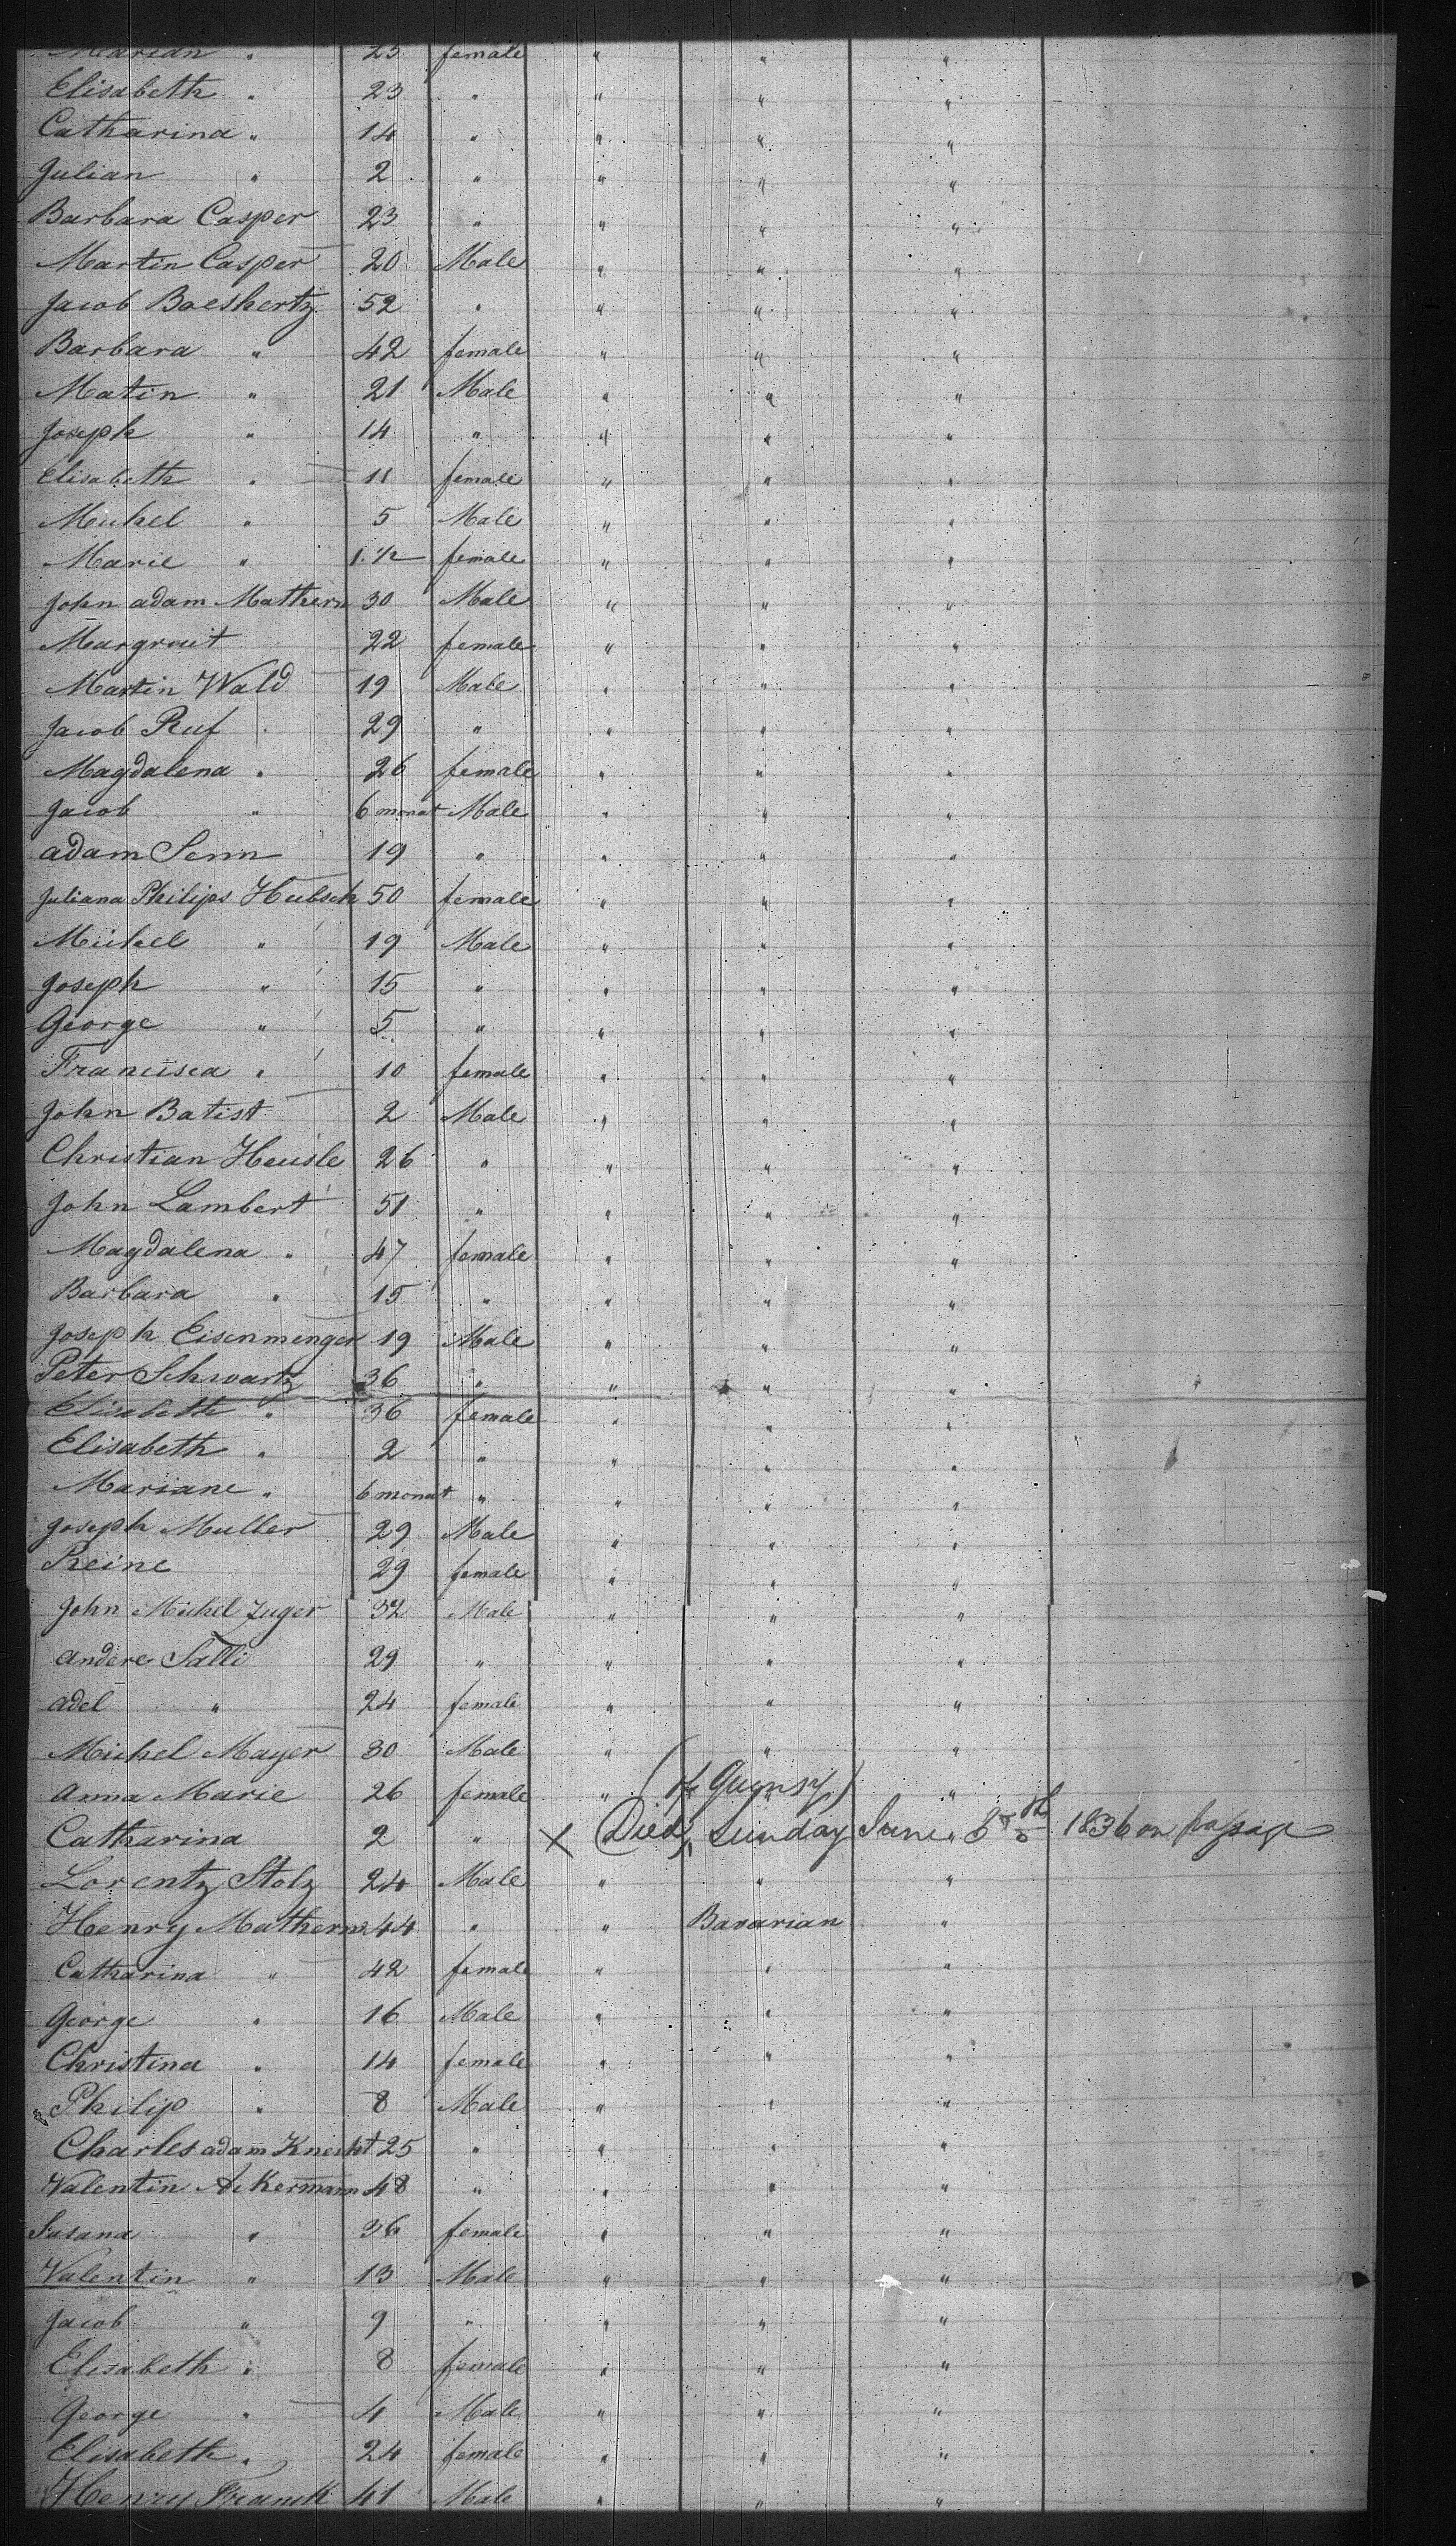 Marian " 25 female " " "
Elisabeth " 23 " " " "
Catharina " 14 " " " "
Julian " 2 " " " "
Barbara Casper 23 " " " "
Martin Casper 20 Male " " "
Jacob Boeshertz 52 " " " "
Barbara " 42 female " " "
Matin " 21 Male " " "
Joseph " 14 " " " "
Elisabeth " 11 female " " "
Michel " 5 Male " " "
Marie " 1.1/2 female " " "
John adam Mathern 30 Male " " "
Margrait 22 female " " "
Martin Wald 19 Male " " "
Jacob Ruf 29 " " " "
Magdalena " 26 female " " "
Jacob " 6 monat Male " " "
adam Senn 19 " " " "
Juliana Philips Hubsch 50 female " " "
Michel " 19 Male " " "
Joseph " 15 " " " "
George " 5 " " " "
Francisca " 10 female " " "
John Batist 2 Male " " "
Christian Heusle 26 " " " "
John Lambert 51 " " " "
Magdalena " 47 female " " "
Barbara " 15 " " " "
Joseph Eisenmenger 19 Male " " "
Peter Schwartz 36 " " " "
Elisabeth " 36 female " " "
Elisabeth " 2 " " " "
Mariane " 6 monat " " " "
Joseph Muller 29 Male " " "
Reine 29 female " " "
John Michel Zuger 32 Male " " "
andere Salli 29 " " " "
adel " 24 female " " "
Michel Mayer 30 Male " " "
anna Marie 26 female " " "
(of Quynsy)
Catharina 2 " X (Died, Sunday June 5th 1836 on passage
Lorentz Stolz 24 Male " " "
Henry Mathern 44 " " Bavarian "
Catharina " 42 female " " "
George " 16 Male " " "
Christina " 14 female " " "
Philip " 8 Male " " "
Charles adam Knecht 25 " " " "
Valentin Ackermann 48 " " " "
Susana " 36 female " " "
Valentin " 13 Male " " "
Jacob " 9 " " " "
Elisabeth " 8 female " " "
George " 4 Male " " "
Elisabeth " 24 female " " "
Henry Franck 41 Male " " "